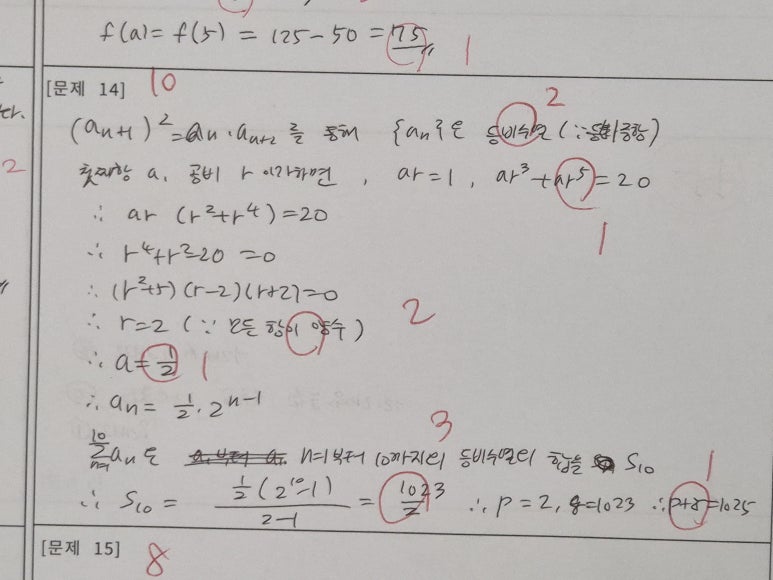 f(a) = f(5) = 125 - 50 = 75 1
[문제 14] 10
다.
2
(aₙ₊₁)² = aₙ · aₙ₊₂ 를 통해 {aₙ}은 등비수열 (∵ 등비중항) 2
첫째항 a, 공비 r이라하면, ar = 1, ar³ + ar⁵ = 20
∴ ar (r² + r⁴) = 20 1
∴ r⁴ + r² - 20 = 0
∴ (r² + 5)(r - 2)(r + 2) = 0
∴ r = 2 (∵ 모든 항이 양수) 2
∴ a = 1/2 1
∴ aₙ = 1/2 · 2ⁿ⁻¹
3
∑ₙ₌₁¹⁰ aₙ은 n=1부터 10까지의 등비수열의 합을 S₁₀ 1
∴ S₁₀ = (1/2 (2¹⁰ - 1))/(2 - 1) = 1023/2 ∴ p = 2, q = 1023 ∴ p+q = 1025
[문제 15] 8